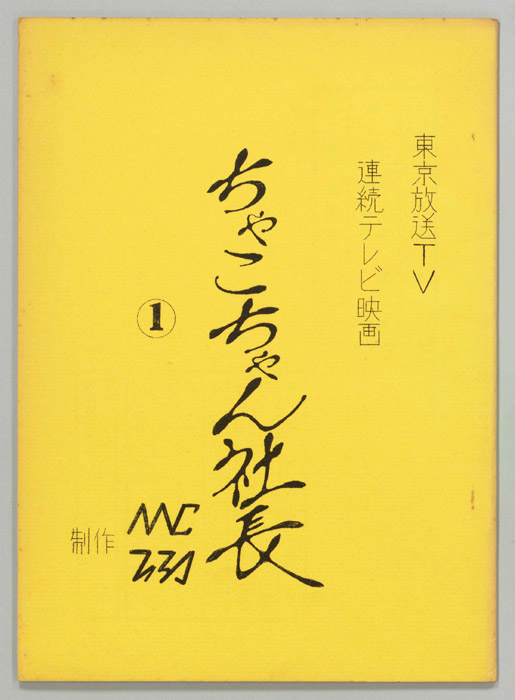 東京放送TV
連続テレビ映画
ちゃこちゃん社長
①
制作